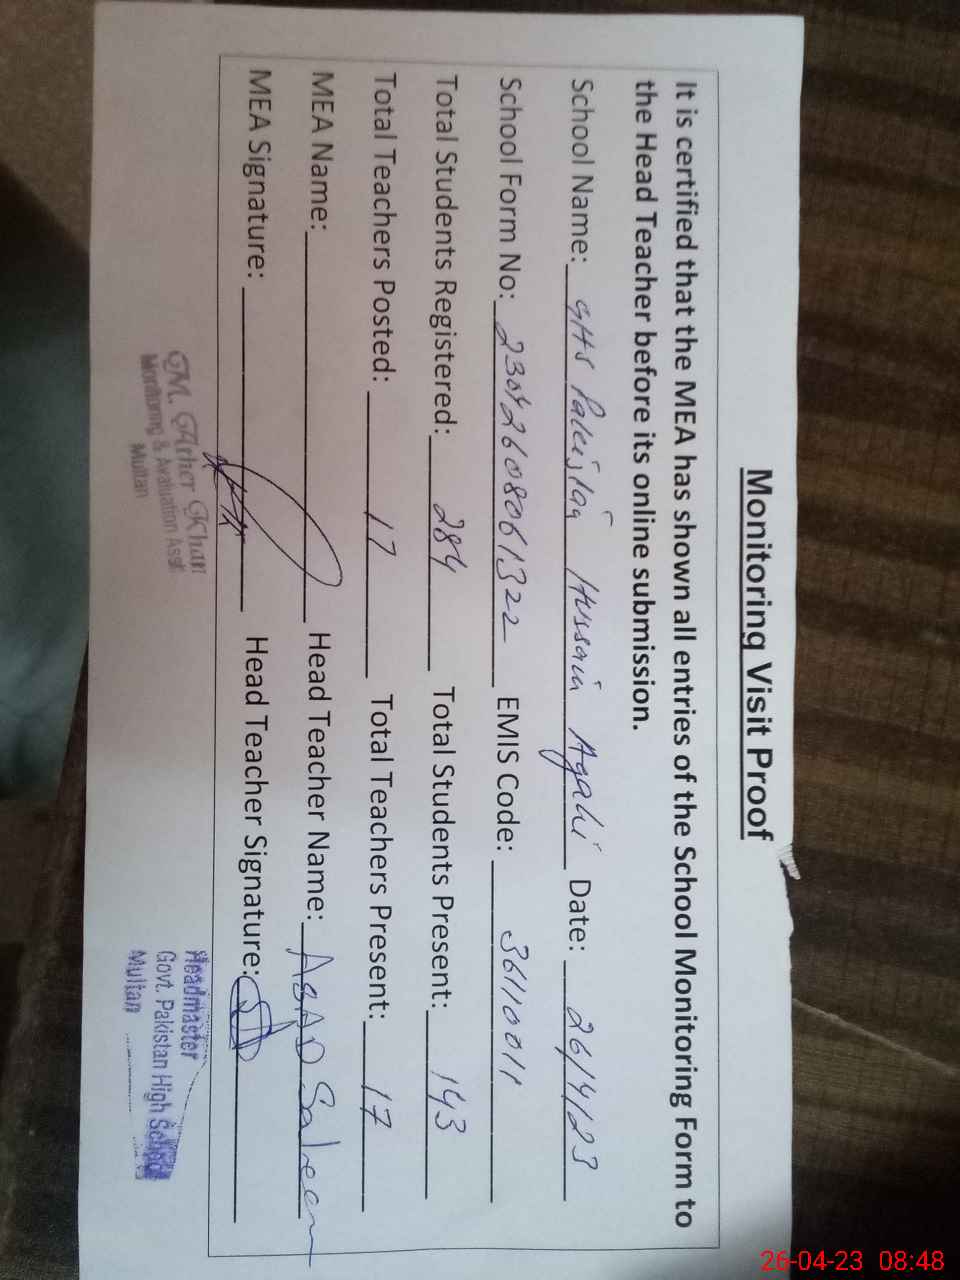 Monitoring Visit Proof
It is certified that the MEA has shown all entries of the School Monitoring Form to
the Head Teacher before its online submission.
School Name: GHS Pakistan Hussain Agahi Date: 26/4/23
School Form No: 23042608061322 EMIS Code: 36110011
Total Students Registered: 284 Total Students Present: 143
Total Teachers Posted: 17 Total Teachers Present: 17
MEA Name: Head Teacher Name: ASAD Saleem
MEA Signature: Head Teacher Signature:
M. Ather Khan
Monitoring & Avaluation Asst
Multan
Headmaster
Govt. Pakistan High School
Multan
26-04-23 08:48